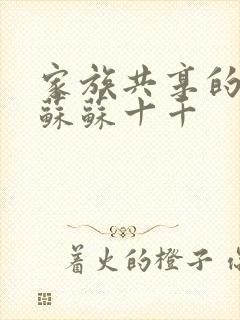 家族共享的
蘇蘇十十
着火的橙子